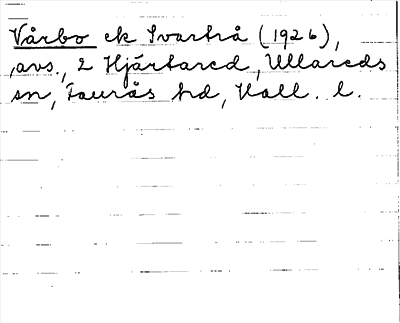 Vårbo ek Svartrå (1926),
avs., 2 Hjärtared, Ullareds
sn, Faurås hd, Hall. l.